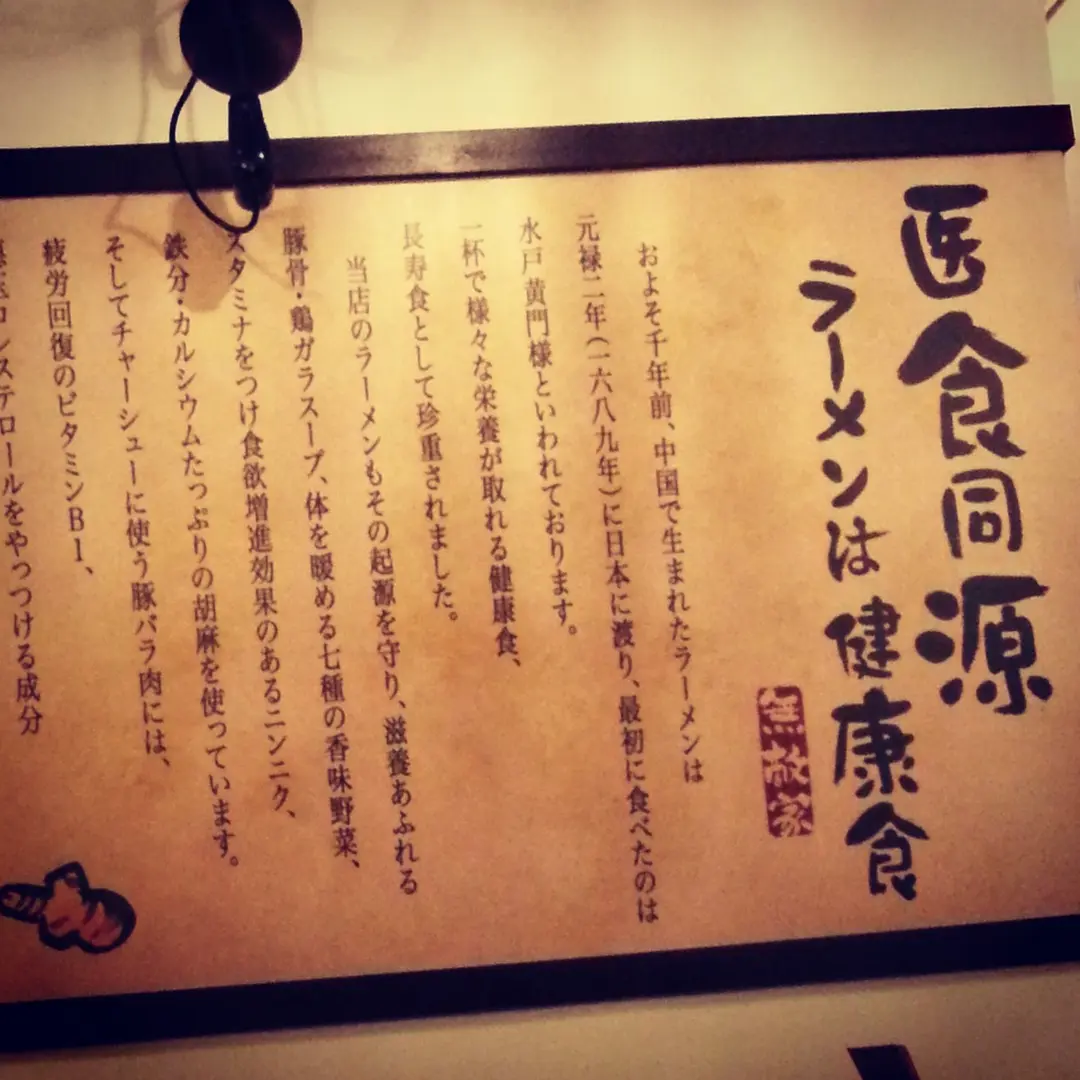 医食同源
ラーメンは健康食
無敵家
およそ千年前、中国で生まれたラーメンは
元禄二年(一六八九年)に日本に渡り、最初に食べたのは
水戸黄門様といわれております。
一杯で様々な栄養が取れる健康食、
長寿食として珍重されました。
当店のラーメンもその起源を守り、滋養あふれる
豚骨・鶏ガラスープ、体を暖める七種の香味野菜、
スタミナをつけ食欲増進効果のあるニンニク、
鉄分・カルシウムたっぷりの胡麻を使っています。
そしてチャーシューに使う豚バラ肉には、
疲労回復のビタミンB1、
コレステロールをやっつける成分